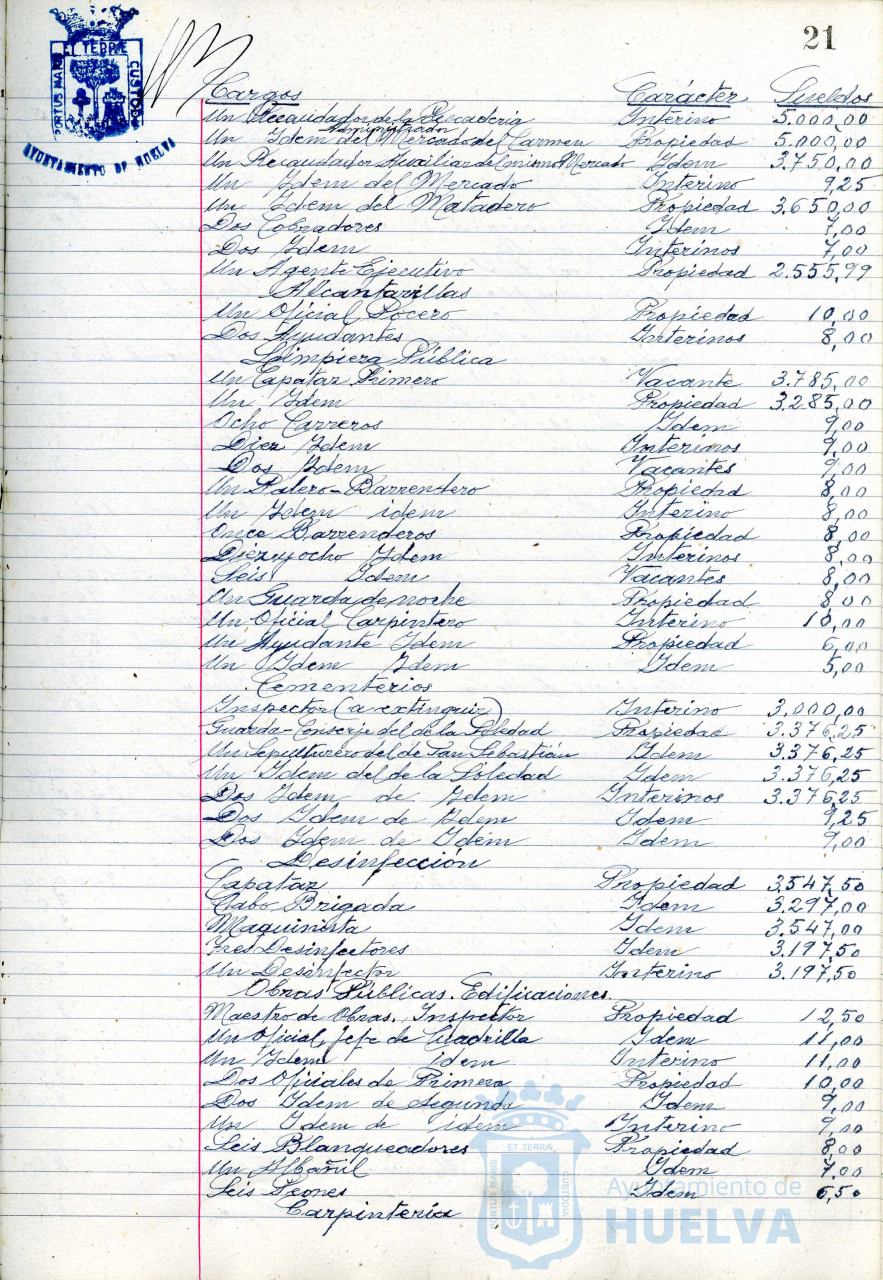 21
PORTUS MARIS ET TERRÆ CUSTODIA
AYUNTAMIENTO DE HUELVA
Cargos Carácter Sueldos
Un Recaudador de la Pescaderia Interino 5.000,00
Administrador
Un Idem del Mercado del Carmen Propiedad 5.000,00
Un Recaudador Auxiliar del mismo Mercado Idem 3.750,00
Un Idem del Mercado Interino 9,25
Un Idem del Matadero Propiedad 3.650,00
Dos Cobradores Idem 7,00
Dos Idem Interinos 7,00
Un Agente Ejecutivo Propiedad 2.555,99
Alcantarillas
Un Oficial Pocero Propiedad 10,00
Dos Ayudantes Interinos 8,00
Limpieza Pública
Un Capataz Primero Vacante 3.785,00
Un Idem Propiedad 3.285,00
Ocho Carreros Idem 9,00
Diez Idem Interinos 9,00
Dos Idem Vacantes 9,00
Un Palero-Barrendero Propiedad 8,00
Un Idem idem Interino 8,00
Once Barrenderos Propiedad 8,00
Diezeyocho Idem Interinos 8,00
Seis Idem Vacantes 8,00
Un Guarda de noche Propiedad 8 00
Un Oficial Carpintero Interino 10,00
Un Ayudante Idem Propiedad 6,00
Un Idem Idem Idem 5,00
Cementerios
Inspector (a extinguir) Interino 3,000,00
Guarda-Conserje del de la Soledad Propiedad 3.376,25
Un Sepulturero del de San Sebastián Idem 3.376,25
Un Idem del de la Soledad Idem 3.376,25
Dos Idem de Idem Interinos 3.376,25
Dos Idem de Idem Idem 9,25
Dos Idem de Idem Idem 9,00
Desinfección
Capataz Propiedad 3.547,50
Cabo Brigada Idem 3.297,00
Maquinista Idem 3.547,00
Tres Desinfectores Idem 3.197,50
Un Desinfector Interino 3.197,50
Obras Públicas. Edificaciones.
Maestro de Obras. Inspector Propiedad 12,50
Un Oficial, Jefe de Cuadrilla Idem 11,00
Un Idem idem Interino 11,00
Dos Oficiales de Primera Propiedad 10,00
Dos Idem de Segunda Idem 9,00
Un Idem de idem Interino 9,00
Seis Blanqueadores Propiedad 8,00
Un Albañil Idem 7.00
Seis Peones Idem 6,50
Carpintería
PORTUS MARIS ET TERRÆ CUSTODIA
Ayuntamiento de
HUELVA